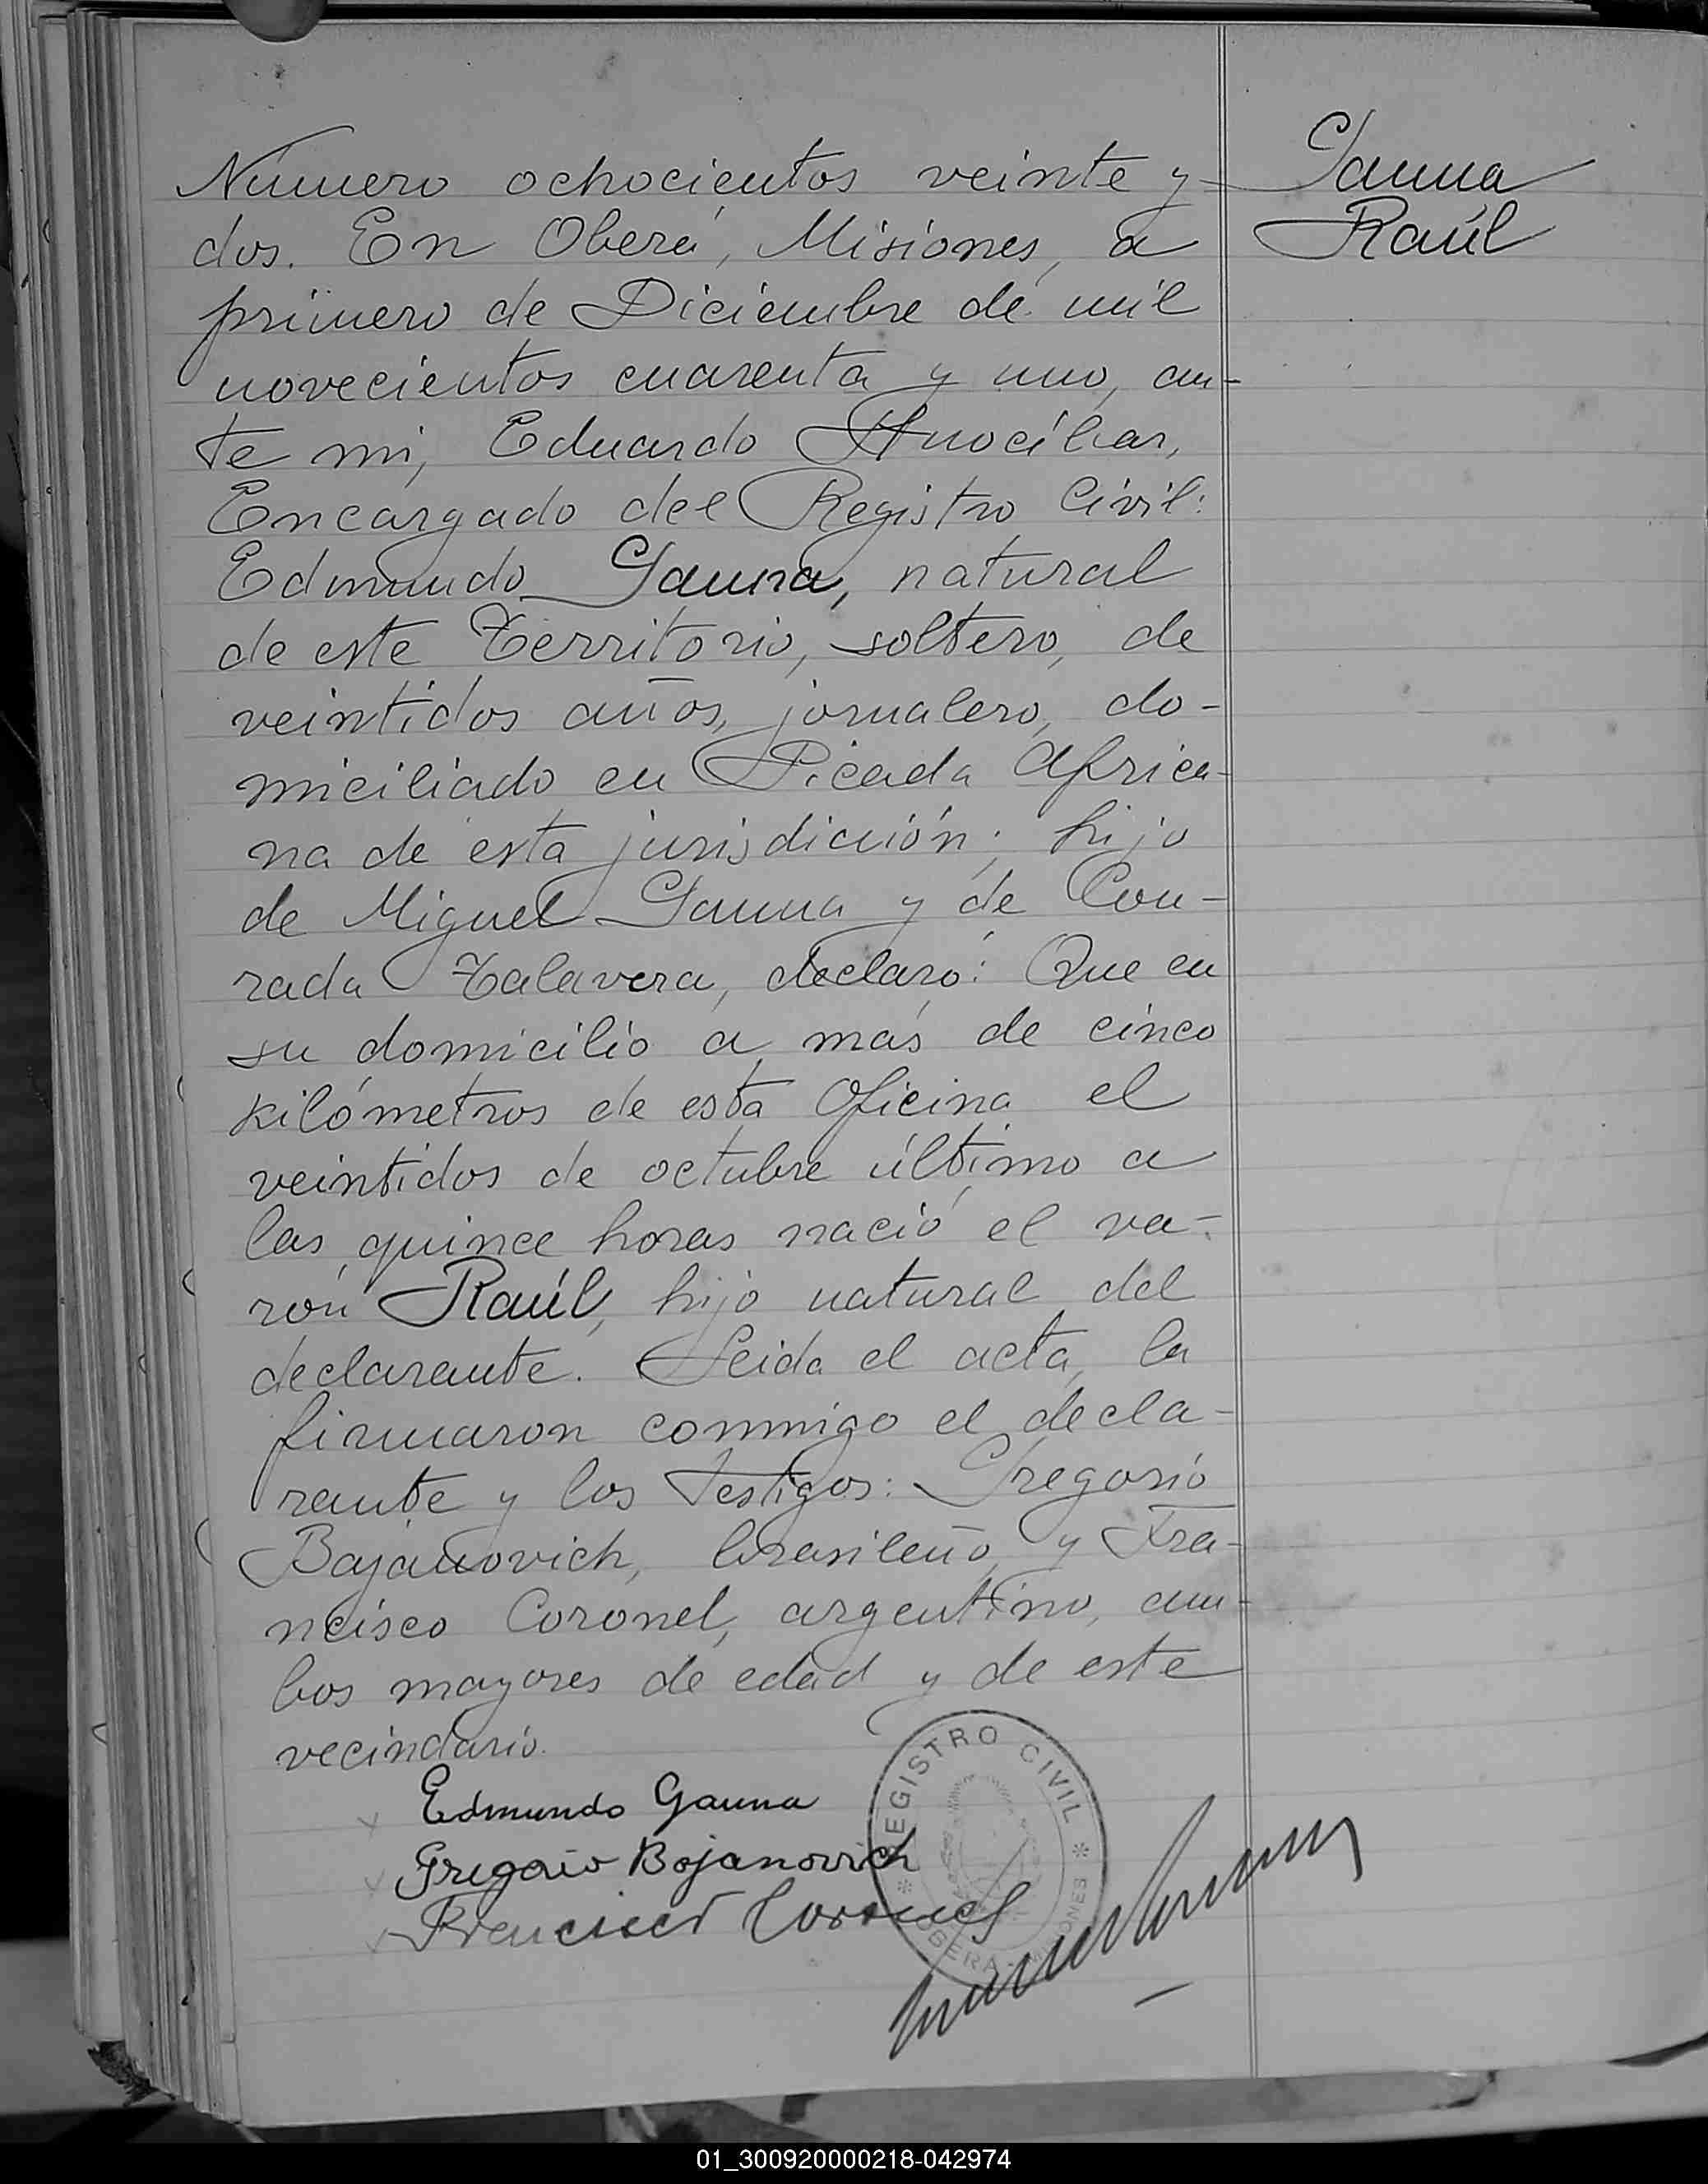 Número ochocientos veinte y
dos. En Oberá, Misiones, a
primero de Diciembre de mil
novecientos cuarenta y uno, an-
te mi, Eduardo
Encargado del Registro Civil:
Edmundo Gauna, natural
de este Territorio, soltero, de
veintidos años, jornalero, do-
miciliado en Picada Africa-
na de esta jurisdicción; hijo
de Miguel Gauna y de Con-
rada Talavera, declaró: Que en
su domicilio a más de cinco
kilómetros de esta Oficina el
veintidos de octubre último a
las quince horas nació el va-
rón Raúl, hijo natural del
declarante. Leida el acta, la
firmaron conmigo el decla-
rante y los testigos: Gregorio
Bajanovich, brasileño, y Fra-
ncisco Coronel, argentino, am-
bos mayores de edad y de este
vecindario.
Gauna
Raúl
Edmundo Gauna
Gregorio Bojanovich
Francisco Coronel
REGISTRO CIVIL
OBERA - MISIONES
01_300920000218-042974